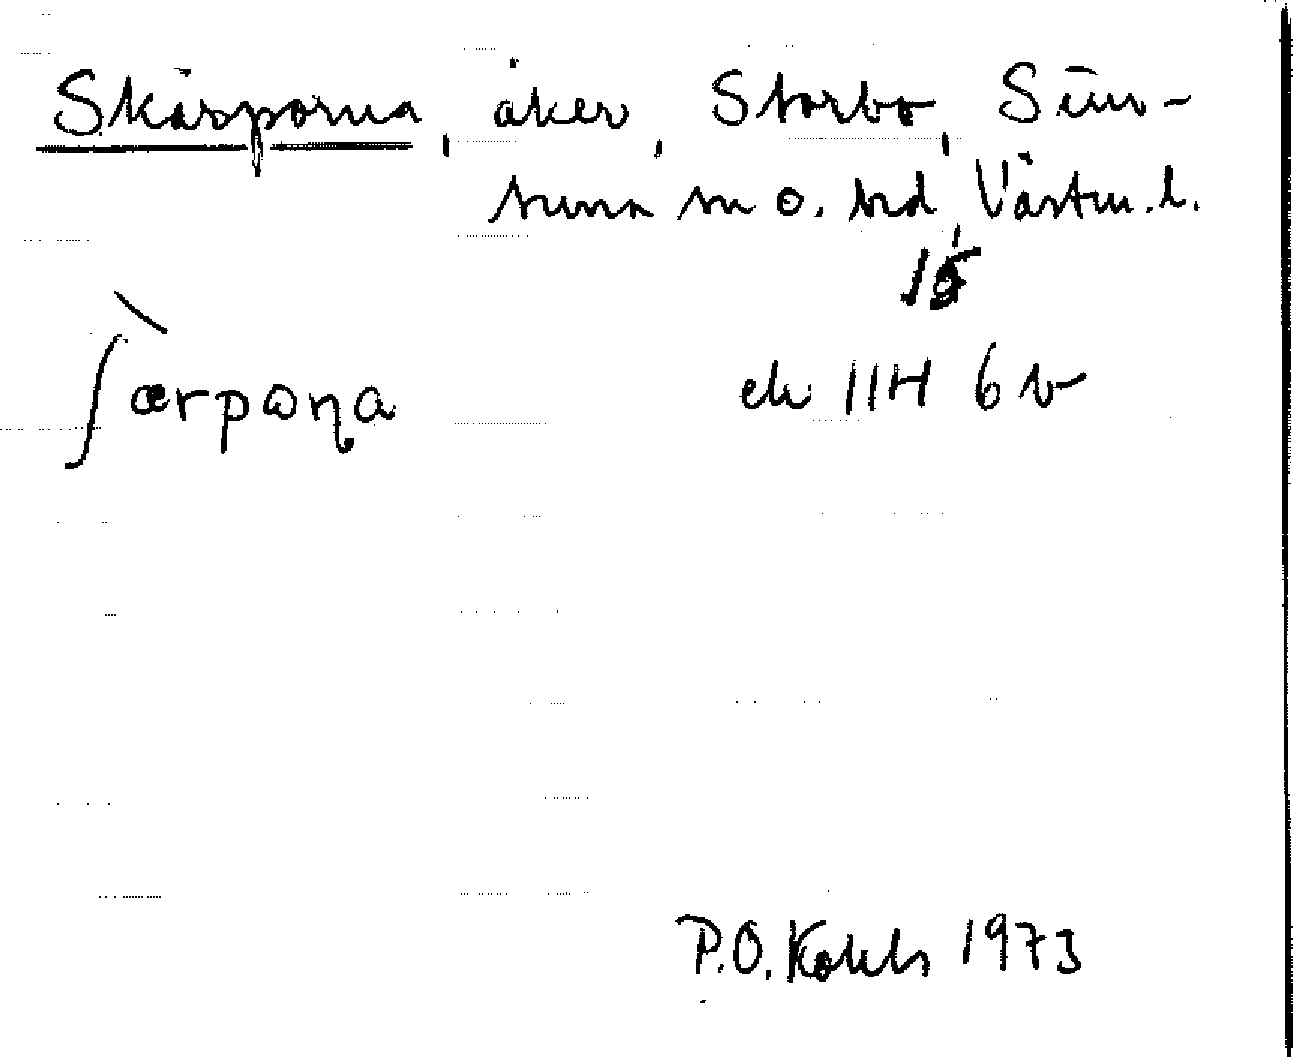 Skärporna, åker, Storbo, Sim-
tuna sn o. hd, Västm. l.
15
ʃ`ærpaɳa ek 11H 6 b
P.O. Kohls 1973